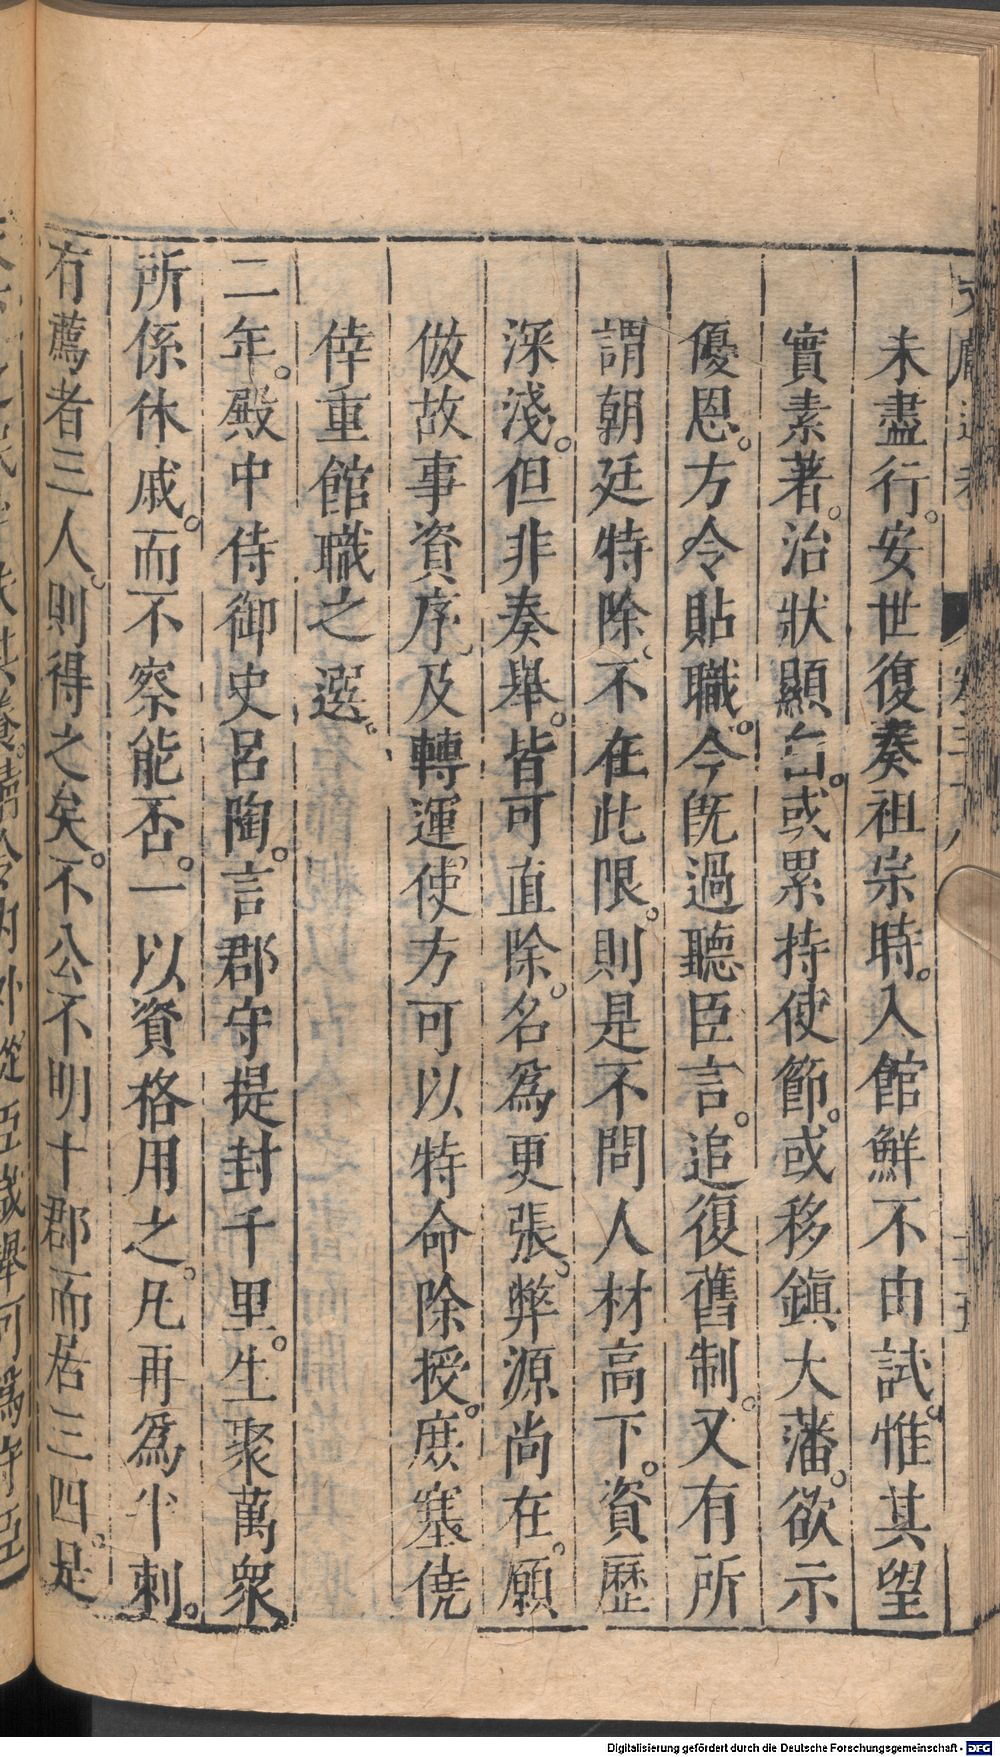 未盡行。安世復奏祖宗時。入館鮮不由試。惟其望
實素著。治狀顯白。或累持使節。或移鎮大藩。欲示
優恩。方令貼職。今旣過聽臣言。追復舊制。又有所
謂朝廷特除、不在此限。則是不問人材高下。資歷
深淺。但非奏舉。皆可直除。名爲更張。弊源尚在。願
倣故事資序、及轉運使方可以特命除授。庶塞僥
倖重館職之選。
二年。殿中侍御史呂陶。言郡守提封千里。生聚萬衆
所係休戚。而不察能否。一以資格用之。凡再爲半刺。
有薦者三人。則得之矣。不公不明十郡而居三四。是
Digitalisierung gefördert durch die Deutsche Forschungsgemeinschaft - DFG